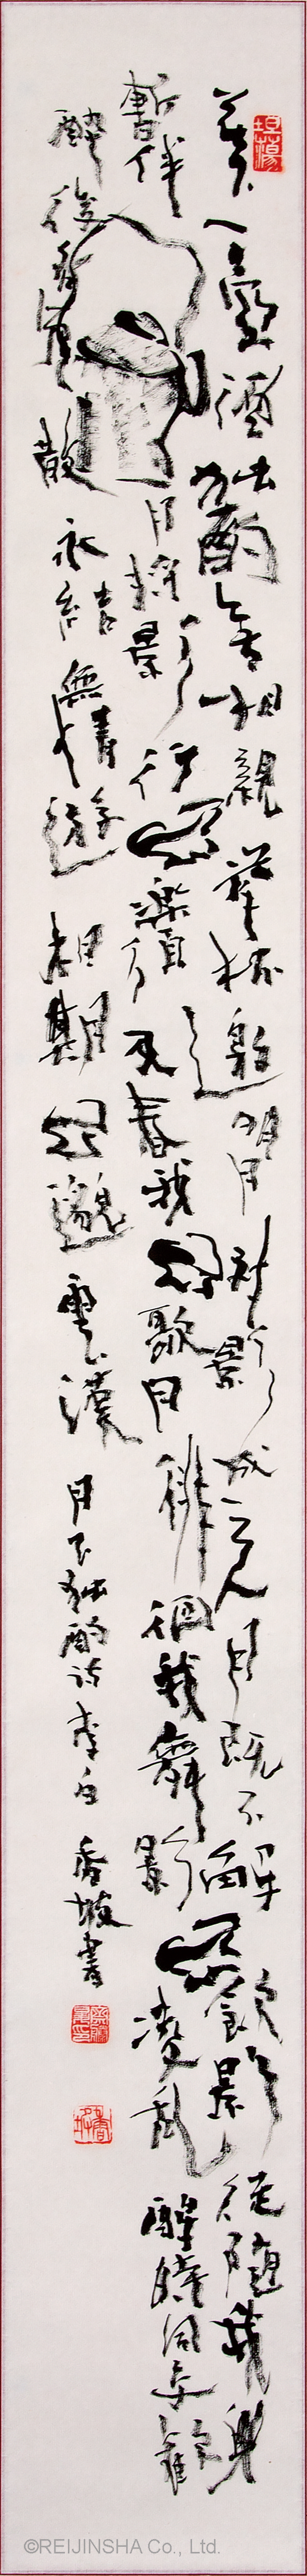 坦蕩
花下一壺酒獨酌無相親舉杯邀明月對影成三人月既不解飲影徒隨我身
暫伴月將影行樂須及春我歌月徘徊我舞影凌亂醒時同交歡
醉後各分散永結無情遊相期邈雲漢月下獨酌詩李白香坡書
©REIJINSHA Co., Ltd.